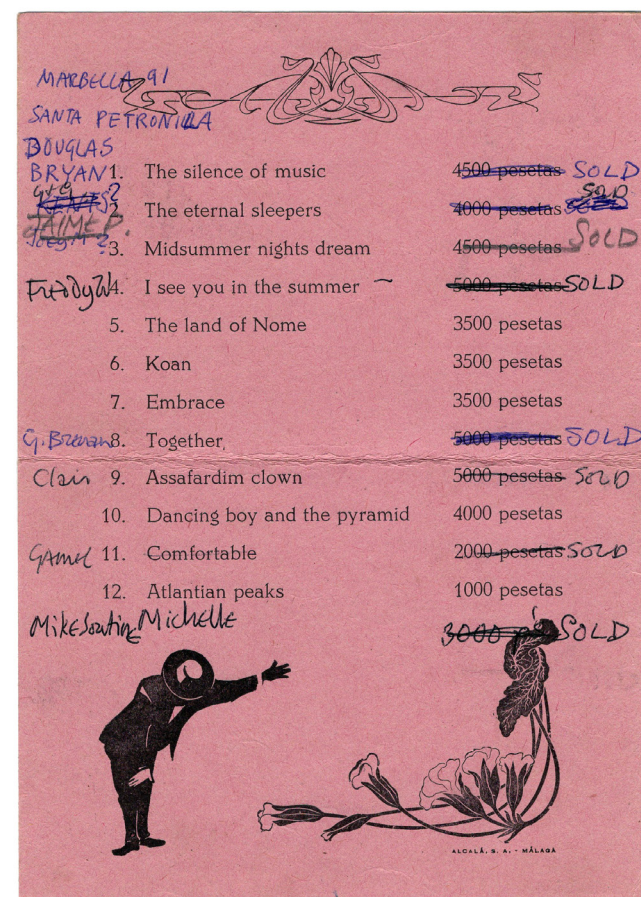 MARBELLA 91
SANTA PETRONILLA
DOUGLAS
BRYAN 1. The silence of music 4500 pesetas SOLD
2. The eternal sleepers 4000 pesetas SOLD
JAIME P.
3. Midsummer nights dream 4500 pesetas SOLD
Freddy W 4. I see you in the summer 5000 pesetas SOLD
5. The land of Nome 3500 pesetas
6. Koan 3500 pesetas
7. Embrace 3500 pesetas
G. Brenan 8. Together 5000 pesetas SOLD
Clair 9. Assafardim clown 5000 pesetas SOLD
10. Dancing boy and the pyramid 4000 pesetas
GAMEL 11. Comfortable 2000 pesetas SOLD
12. Atlantian peaks 1000 pesetas
Mike Michelle 3000 SOLD
ALCALÁ, S. A. - MÁLAGA